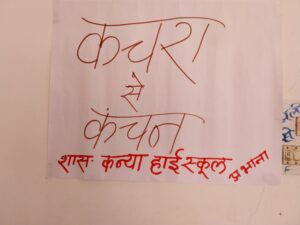 कचरा
से
कंचन
शासः कन्या हाई स्कूल